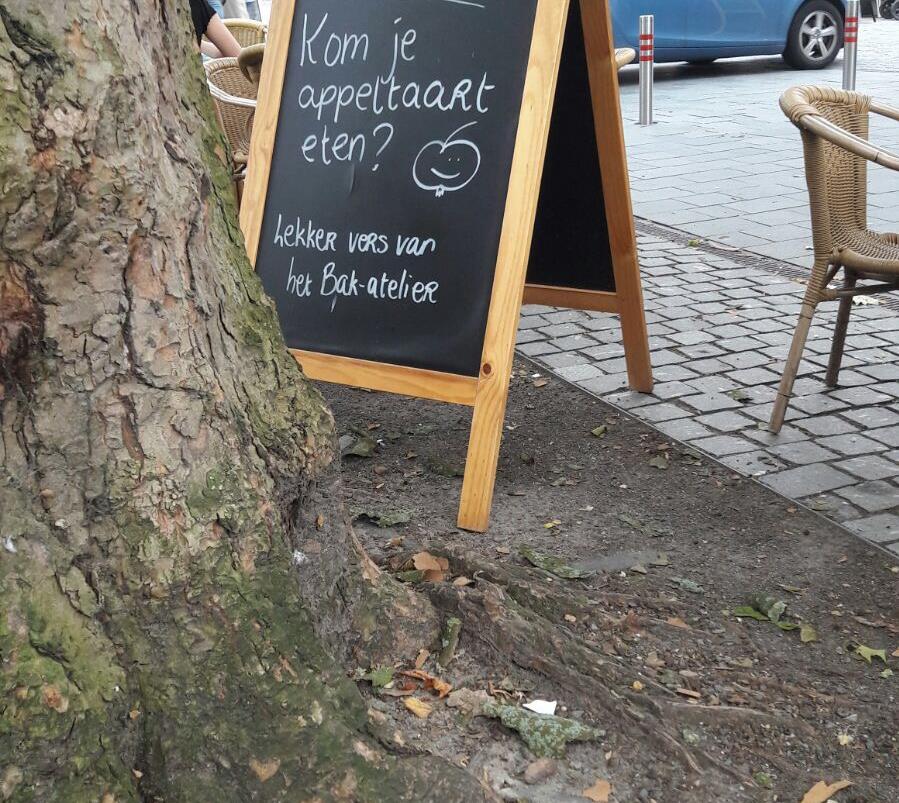 Kom je
appeltaart
eten?
Lekker vers van
het Bak-atelier